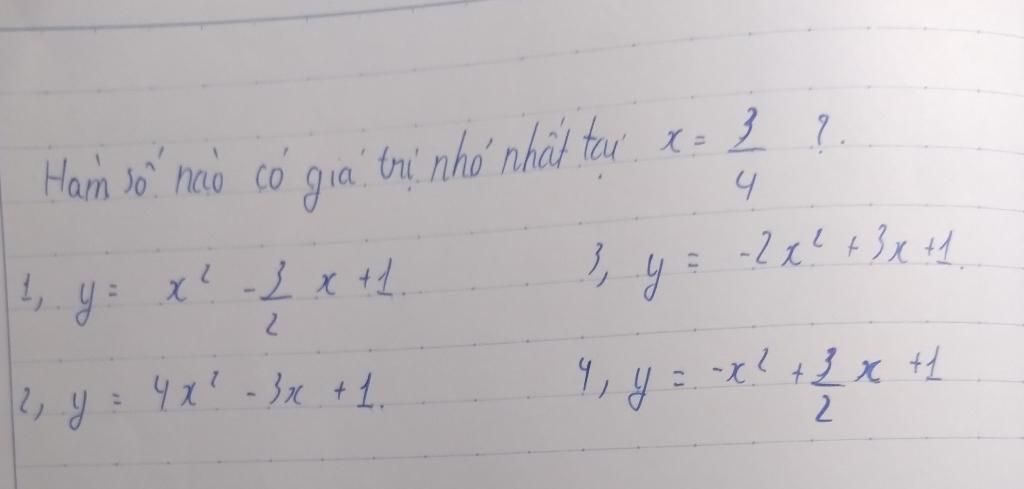 Hàm số nào có giá trị nhỏ nhất tại x = 3/4 ?.
1, y = x² - 3/2 x + 1.
3, y = -2x² + 3x + 1.
2, y = 4x² - 3x + 1.
4, y = -x² + 3/2 x + 1